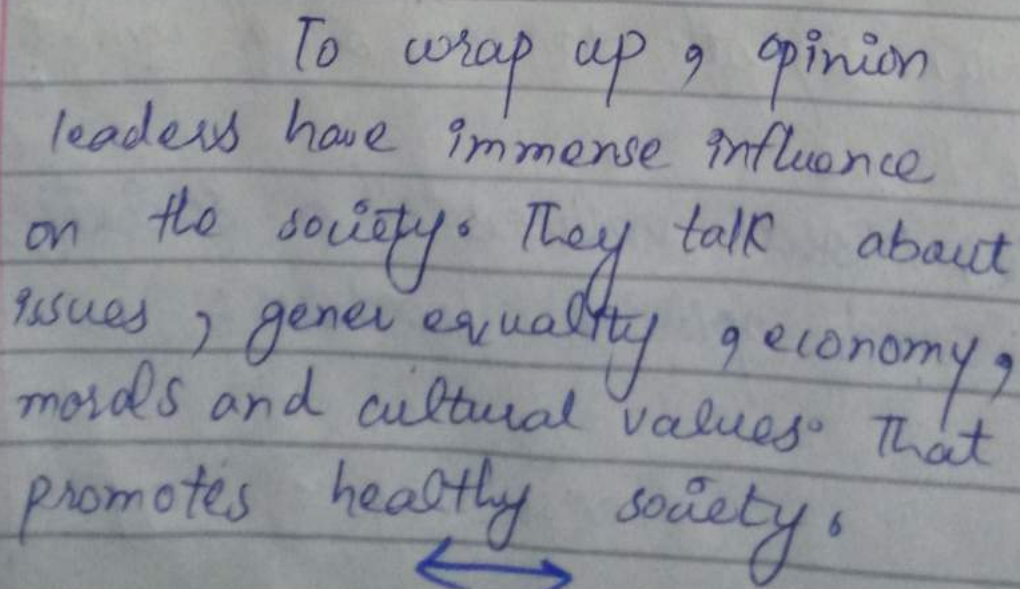 To wrap up, opinion
leaders have immense influence
on the society. They talk about
issues, gener equality, economy,
morals and cultural values. That
promotes healthy society.